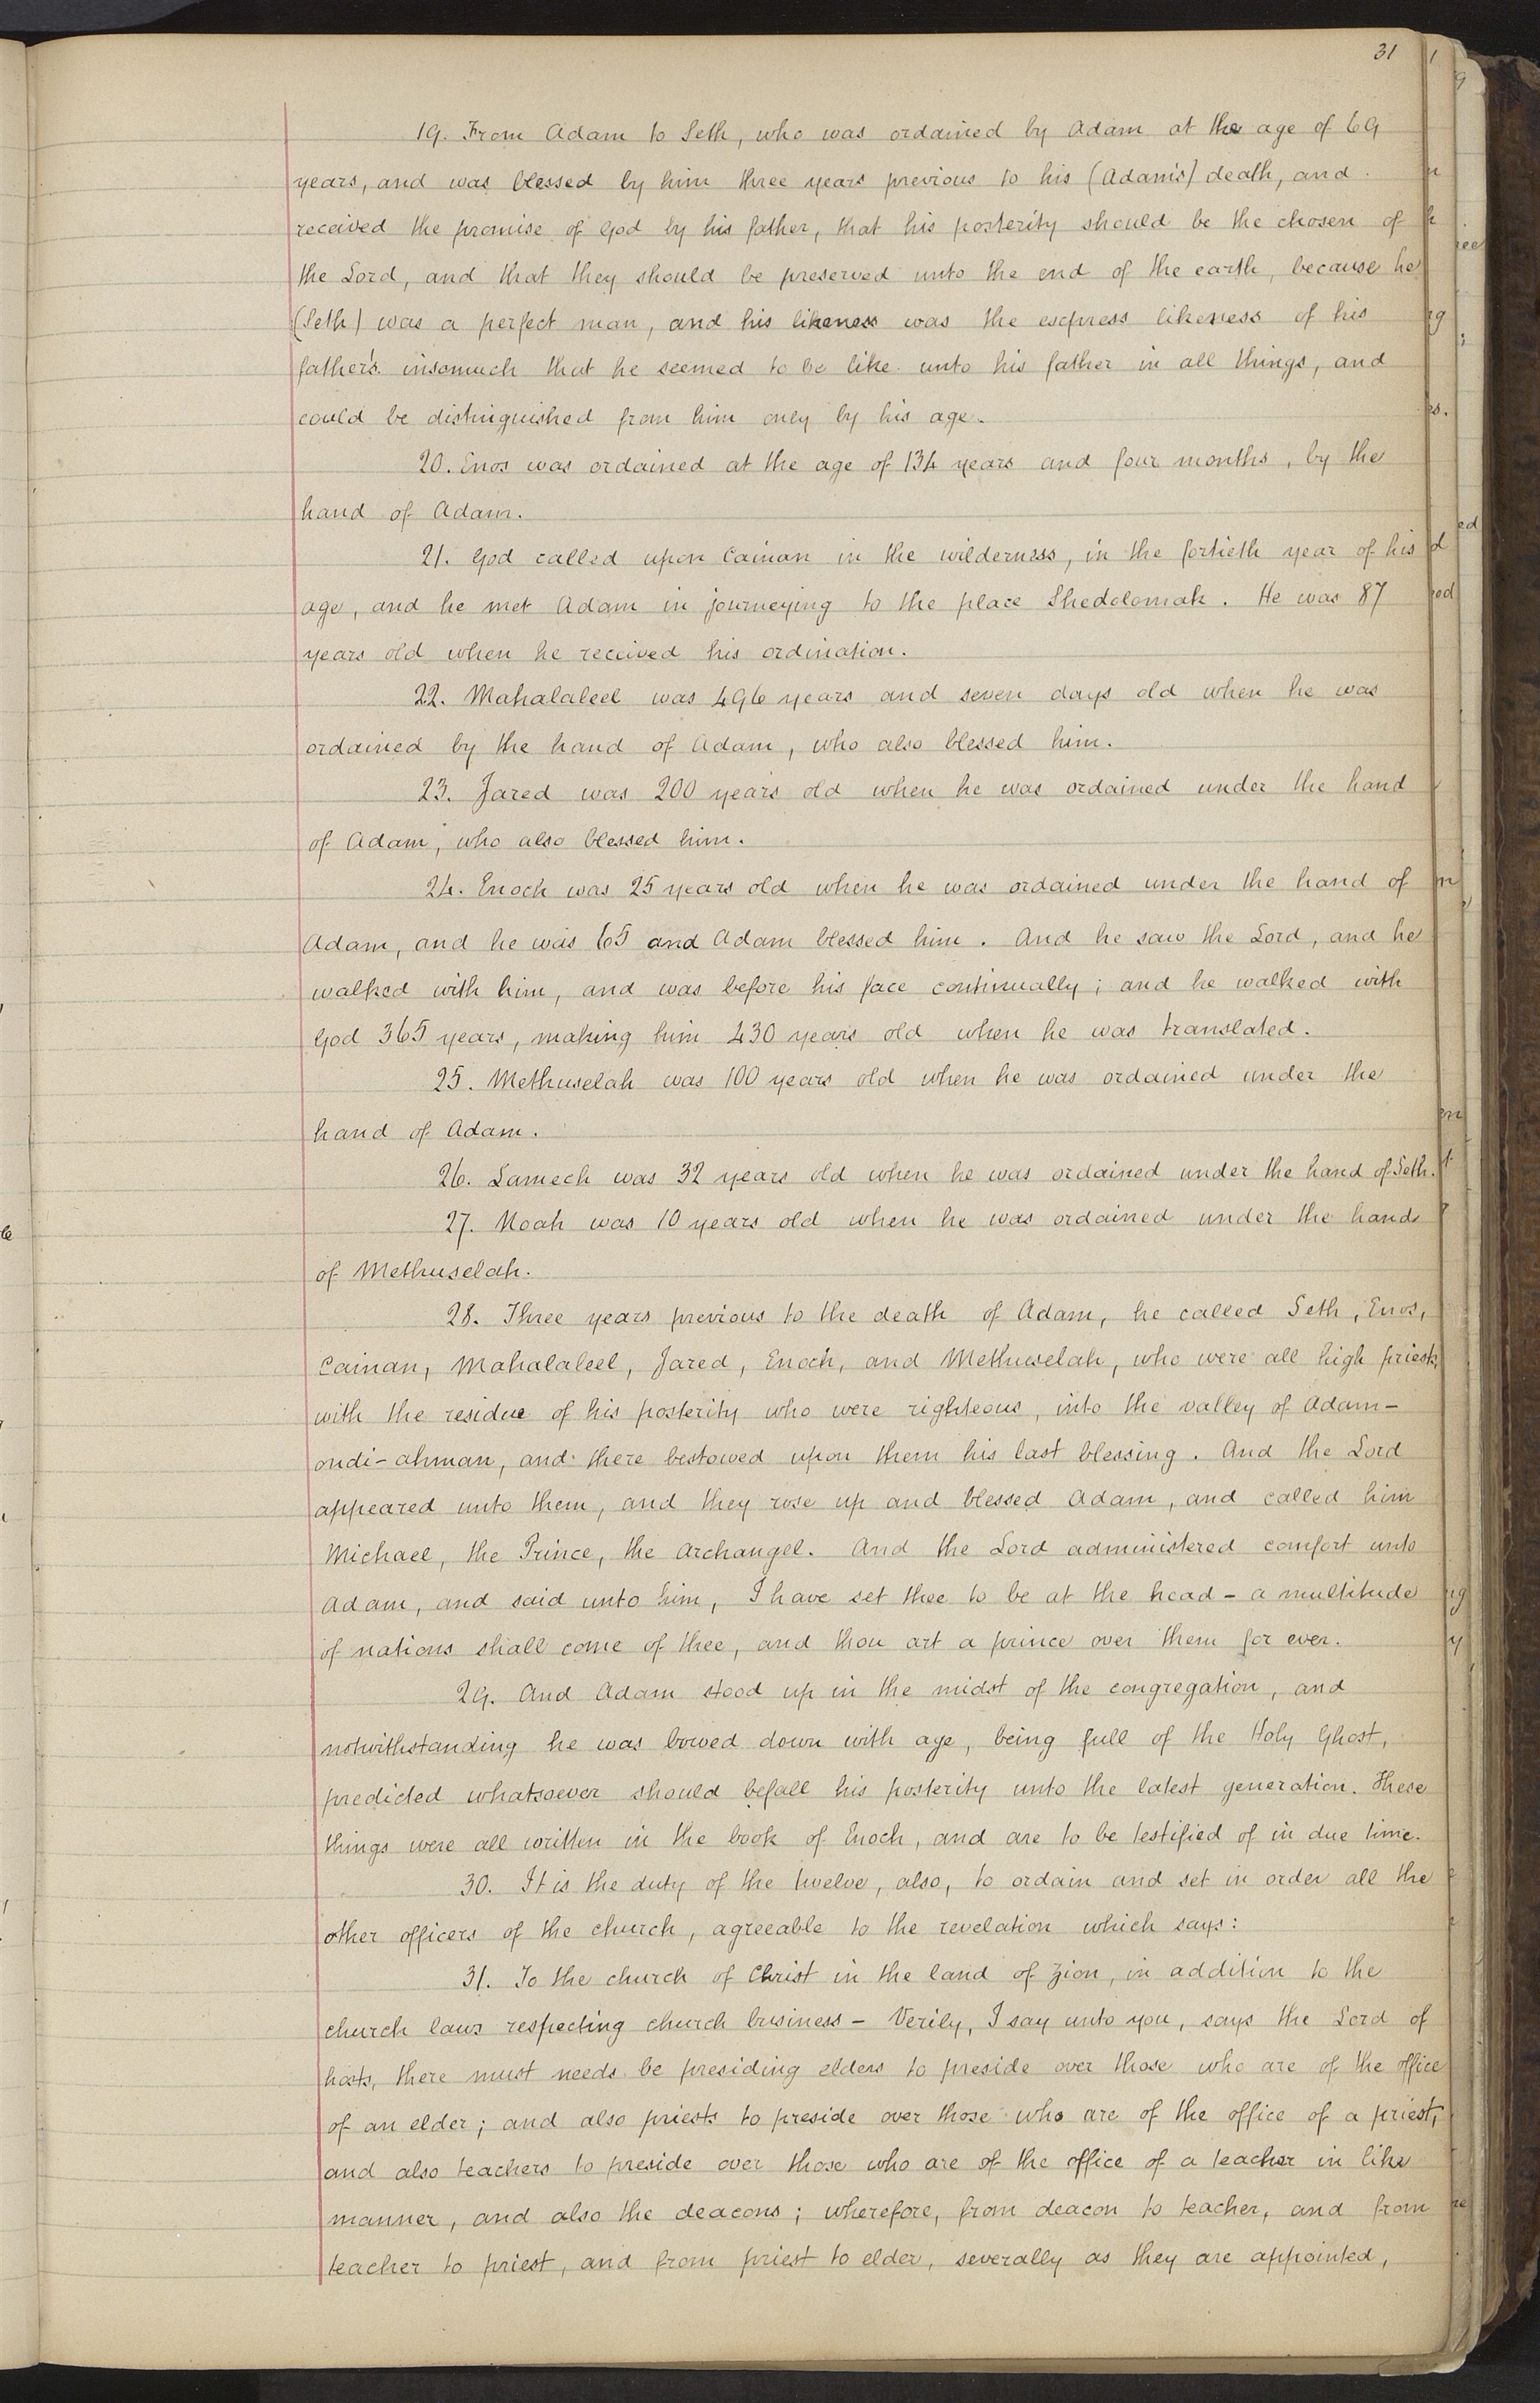 31
19. From Adam to Seth, who was ordained by Adam at the age of 69
years, and was blessed by him three years previous to his (Adam's) death, and
received the promise of God by his father, that his posterity should be the chosen of
the Lord, and that they should be preserved unto the end of the earth, because he
(Seth) was a perfect man, and his likeness was the express likeness of his
father's. insomuch that he seemed to be like unto his father in all things, and
could be distinguished from him only by his age.
20. Enos was ordained at the age of 134 years and four months, by the
hand of Adam.
21. God called upon Cainan in the wilderness, in the fortieth year of his
age, and he met Adam in journeying to the place Shedolomak. He was 87
years old when he received his ordination.
22. Mahalaleel was 496 years and seven days old when he was
ordained by the hand of Adam, who also blessed him.
23. Jared was 200 years old when he was ordained under the hand
of Adam, who also blessed him.
24. Enoch was 25 years old when he was ordained under the hand of
Adam, and he was 65 and Adam blessed him. And he saw the Lord, and he
walked with him, and was before his face continually; and he walked with
God 365 years, making him 430 years old when he was translated.
25. Methuselah was 100 years old when he was ordained under the
hand of Adam.
26. Lamech was 32 years old when he was ordained under the hand of Seth.
27. Noah was 10 years old when he was ordained under the hand
of Methuselah.
28. Three years previous to the death of Adam, he called Seth, Enos,
Cainan, Mahalaleel, Jared, Enoch, and Methuselah, who were all high priests,
with the residue of his posterity who were righteous, into the valley of Adam-
ondi-ahman, and there bestowed upon them his last blessing. And the Lord
appeared unto them, and they rose up and blessed Adam, and called him
Michael, the Prince, the Archangel. And the Lord administered comfort unto
Adam, and said unto him, I have set thee to be at the head - a multitude
of nations shall come of thee, and thou art a prince over them for ever.
29. And Adam stood up in the midst of the congregation, and
notwithstanding he was bowed down with age, being full of the Holy Ghost,
predicted whatsoever should befall his posterity unto the latest generation. These
things were all written in the book of Enoch, and are to be testified of in due time.
30. It is the duty of the twelve, also, to ordain and set in order all the
other officers of the church, agreeable to the revelation which says:
31. To the church of Christ in the land of Zion, in addition to the
church laws respecting church business - Verily, I say unto you, says the Lord of
hosts, there must needs be presiding elders to preside over those who are of the office
of an elder; and also priests to preside over those who are of the office of a priest;
and also teachers to preside over those who are of the office of a teacher in like
manner, and also the deacons; wherefore, from deacon to teacher, and from
teacher to priest, and from priest to elder, severally as they are appointed,